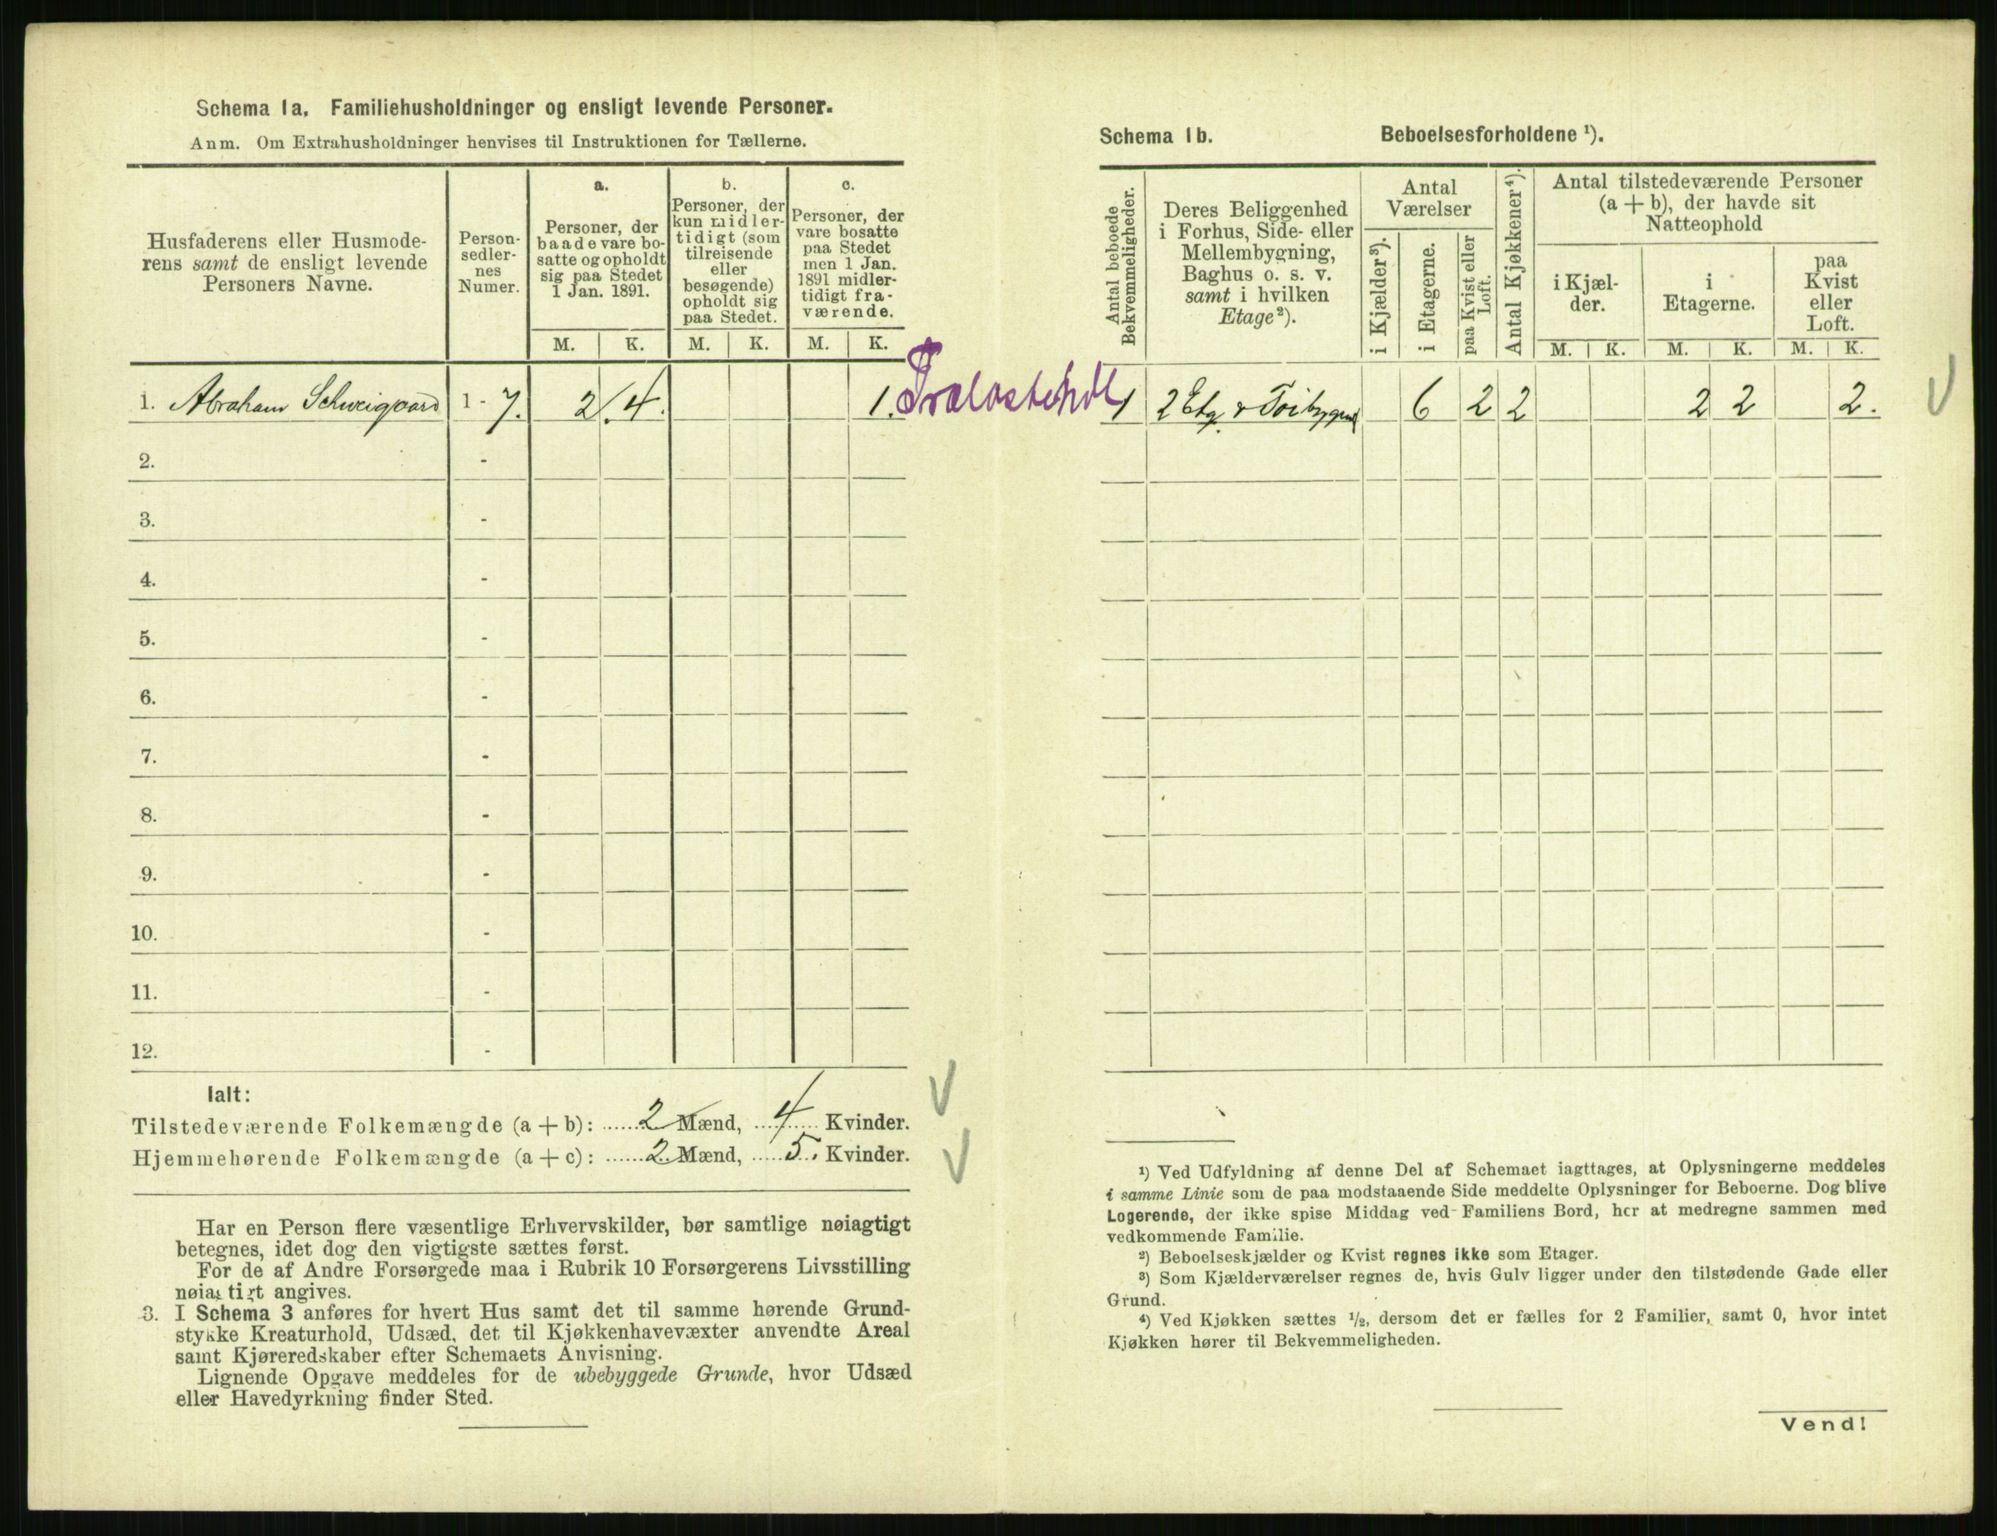 Schema 1a. Familiehusholdninger og ensligt levende Personer.
Anm. Om Extrahusholdninger henvises til Instruktionen for Tællerne.
Husfaderens eller Husmode-
rens samt de ensligt levende
Personers Navne.
Person-
sedler-
nes
Numer.
a.
Personer, der
baade vare bo-
satte og opholdt
sig paa Stedet
1 Jan. 1891.
b.
Personer, der
kun midler-
tidigt (som
tilreisende
eller
besøgende)
opholdt sig
paa Stedet.
c.
Personer, der
vare bosatte
paa Stedet
men 1 Jan.
1891 midler-
tidigt fra-
værende.
M. K. M. K. M. K.
1. Abraham Schweigaard 1 - 7. 2. 4. 1.
2. -
3. -
4. -
5. -
6. -
7. -
8. -
9. -
10. -
11. -
12. -
Ialt:
Tilstedeværende Folkemængde (a + b): 2 Mænd, 4 Kvinder.
Hjemmehørende Folkemængde (a + c): 2 Mænd, 5. Kvinder.
Har en Person flere væsentlige Erhvervskilder, bør samtlige nøiagtigt
betegnes, idet dog den vigtigste sættes først.
For de af Andre Forsørgede maa i Rubrik 10 Forsørgerens Livsstilling
nøiagtigt angives.
3. I Schema 3 anføres for hvert Hus samt det til samme hørende Grund-
stykke Kreaturhold, Udsæd, det til Kjøkkenhavevæxter anvendte Areal
samt Kjøreredskaber efter Schemaets Anvisning.
Lignende Opgave meddeles for de ubebyggede Grunde, hvor Udsæd
eller Havedyrkning finder Sted.
Schema 1b. Beboelsesforholdene ¹).
Antal beboede
Bekvemmeligheder.
Deres Beliggenhed
i Forhus, Side- eller
Mellembygning,
Baghus o. s. v.
samt i hvilken
Etage²).
Antal
Værelser
i Kjælder³).
i Etagerne.
paa Kvist eller
Loft.
Antal Kjøkkener⁴).
Antal tilstedeværende Personer
(a + b), der havde sit
Natteophold
i Kjæl-
der.
i
Etagerne.
paa
Kvist
eller
Loft.
M. K. M. K. M. K.
1 2 Etg. 6 2 2 2 2 2.
¹) Ved Udfyldning af denne Del af Schemaet iagttages, at Oplysningerne meddeles
i samme Linie som de paa modstaaende Side meddelte Oplysninger for Beboerne. Dog blive
Logerende, der ikke spise Middag ved Familiens Bord, her at medregne sammen med
vedkommende Familie.
²) Beboelseskjælder og Kvist regnes ikke som Etager.
³) Som Kjælderværelser regnes de, hvis Gulv ligger under den tilstødende Gade eller
Grund.
⁴) Ved Kjøkken sættes ½, dersom det er fælles for 2 Familier, samt 0, hvor intet
Kjøkken hører til Bekvemmeligheden.
Vend!